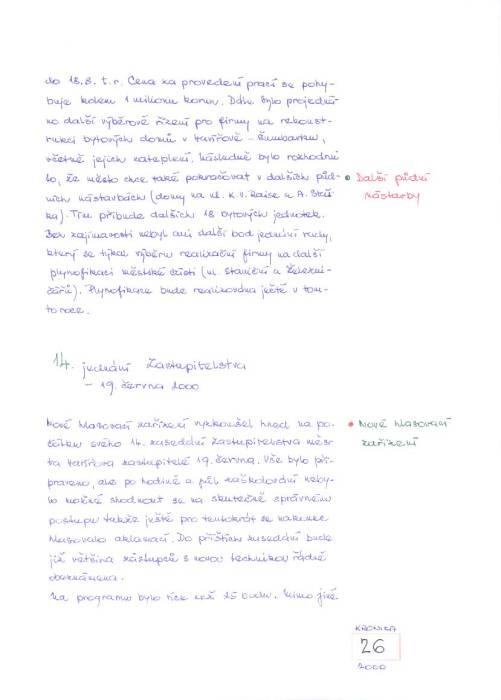 do 18.8. t.r. Cena za provedení prací se pohy-
buje kolem 1 milionu korun. Dále bylo projedná-
no další výběrové řízení pro firmy na rekonst-
rukci bytových domů v Havířově - Šumbarku,
včetně jejich zateplení. Následně bylo rozhodnu-
to, že město chce také pokračovat v dalších půd-
ních nástavbách (domy na ul. K.V. Raise a A. Staš-
ka). Tím přibude dalších 18 bytových jednotek.
Bez zajímavosti nebyl ani další bod jednání rady,
který se týkal výběru realizační firmy na další
plynofikaci městské části (ul. Staniční a Železni-
čářů). Plynofikace bude realizována ještě v tom-
to roce.
Další půdní
nástavby
14. jednání Zastupitelstva
- 19. června 2000
Nové hlasovací zařízení vyzkoušel hned na po-
čátku svého 14. zasedání Zastupitelstva měs-
ta Havířova zastupitelé 19. června. Vše bylo při-
praveno, ale po hodině a půl zaškolování neby-
lo možné shodnout se na skutečně správném
postupu takže ještě pro tentokrát se nakonec
hlasovalo aklamací. Do příštího zasedání bude
již většina zástupců s novou technikou řádně
obeznámena.
Na programu bylo více než 25 bodů. Mimo jiné
Nové hlasovací
zařízení
KRONIKA
26
2000